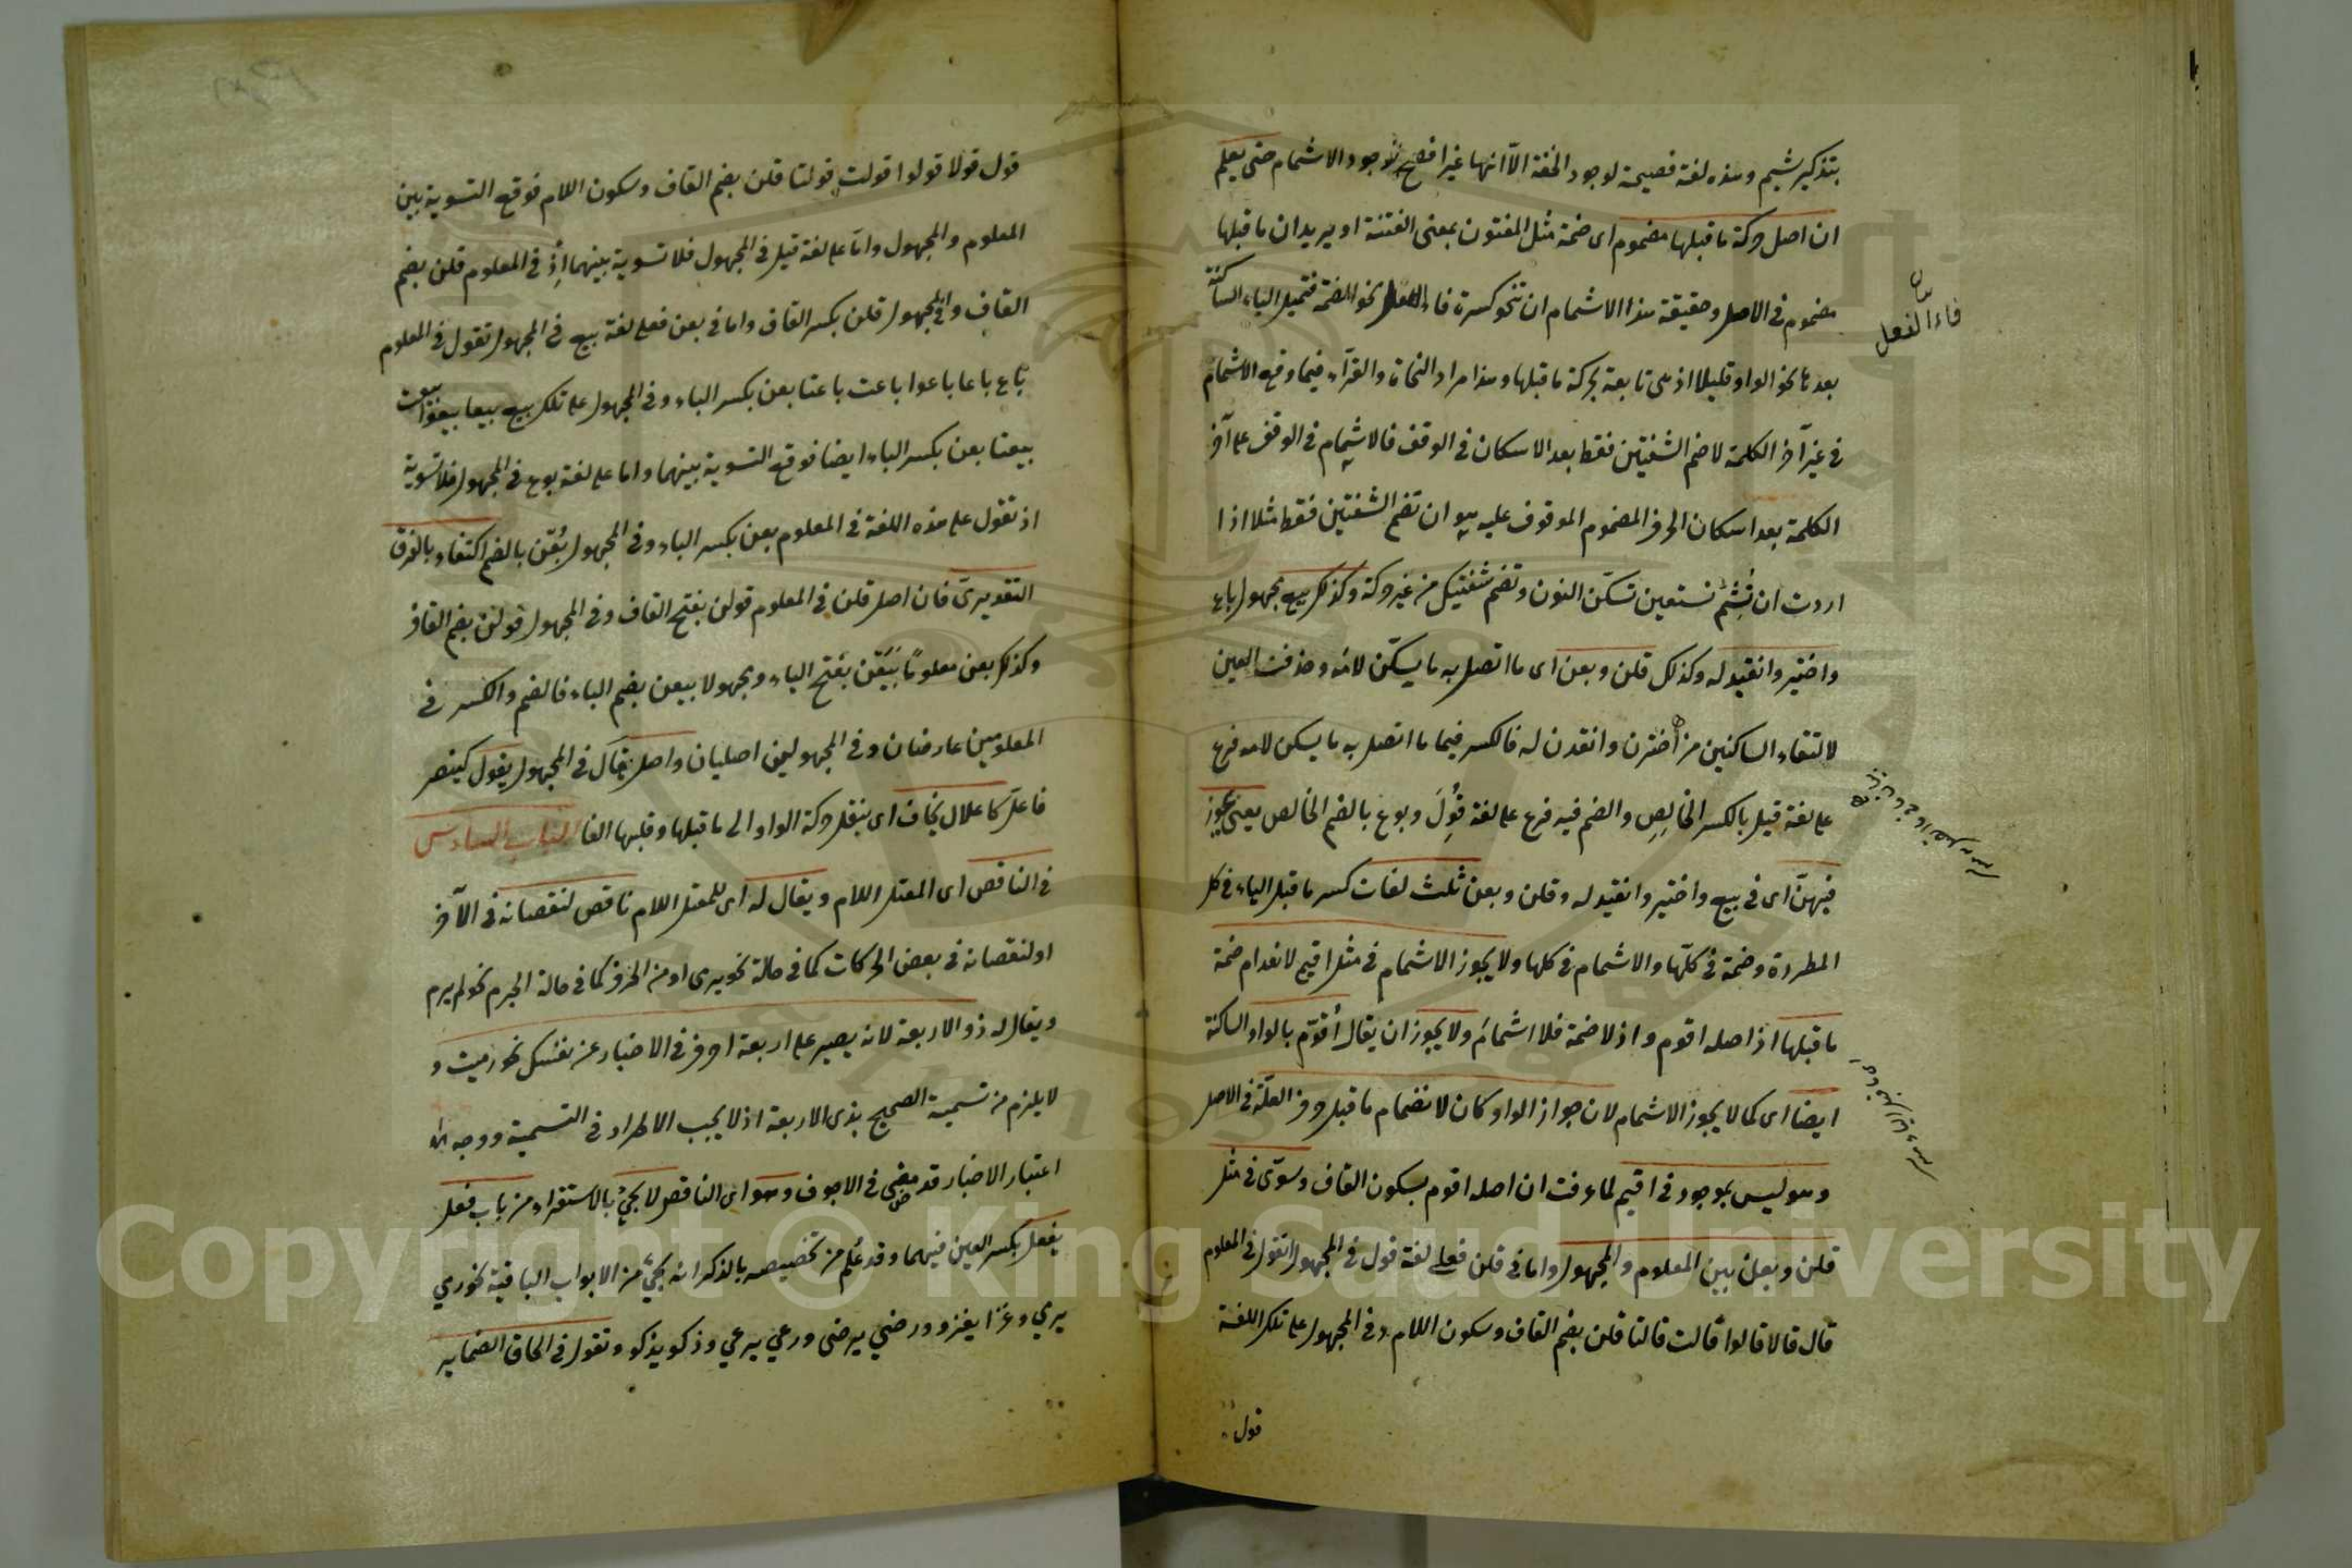 بتذكير شيم وهذه لغة فصيحة لوجود الخفة الا انها غير افصح لوجود الاشمام حتى يعلم
ان اصل حركة ما قبلها مضموم اى ضمة مثل المفتون بمعنى الفتنة او يريد ان ما قبلها
مضموم فى الاصل وحقيقة هذا الاشمام ان تنحو كسرة فاء الفعل نحو الضمة فتميل الياء الساكنة
بعدها نحو الواو قليلا اذ هى تابعة لحركة ما قبلها وهذا مراد النحاة والقرّاء فيما وقع الاشمام
فى غير آخر الكلمة لا ضم الشفتين فقط بعد الاسكان فى الوقف فالاشمام فى الوقف على آخر
الكلمة بعد اسكان الحرف المضموم الموقوف عليه هو ان تضم الشفتين فقط مثلا اذا
اردت ان تُشِمّ نستعين تسكّن النون وتضم شفتيك من غير حركة وكذلك بيع مجهول باع
واختير وانقيد له وكذلك قلن وبعن اى ما اتصل به ما يسكّن لامه وحذفت العين
لالتقاء الساكنين من اُخترن وانقدن له فالكسر فيما ما اتصل به ما يسكن لامه فرع
على لغة قيل بالكسر الخالِصِ والضم فيه فرع على لغة قُوِلَ وبوع بالضم الخالص يعنى يجوز
فيهنّ اى فى بيع واختير وانقيد له وقلن وبعن ثلث لغات كسر ما قبل الياء فى كل
المطردة وضمة فى كلّها والاشمام فى كلها ولا يجوز الاشمام فى مثل اقيم لانعدام ضمة
ما قبلها اذ اصله اقوم واذ لا ضمة فلا اشمامَ ولا يجوز ان يقال اُقوّم بالواو الساكنة
ايضا اى كما لا يجوز الاشمام لان جواز الواو كان لانضمام ما قبل حرف العلّة فى الاصل
وهو ليس بموجود فى اقيم لما عرفت ان اصله اقوم بسكون القاف وسوّى فى مثل
قلن وبعن بين المعلوم والمجهول واما فى قلن فعلى لغة قول فى المجهول تقول فى المعلوم
قال قالا قالوا قالت قالتا قلن بضم القاف وسكون اللام وفى المجهول على تلك اللغة
قول
بيان
فاء الفعل
قول قولا قولوا قولت قولتا قلن بضم القاف وسكون اللام فوقع التسوية بين
المعلوم والمجهول وامّا على لغة قيل فى المجهول فلا تسوية بينهما اذْ فى المعلوم قلن بضم
القاف وفى المجهول قلن بكسر القاف واما فى بعن فعلى لغة بيع فى المجهول تقول فى المعلوم
باع باعا باعوا باعت باعتا بعن بكسر الباء وفى المجهول على تلك بيع بيعا بيعوا بيعت
بيعتا بعن بكسر الباء ايضا فوقع التسوية بينهما واما على لغة بوع فى المجهول فلا تسوية
اذ تقول على هذه اللغة فى المعلوم بعن بكسر الباء وفى المجهول بُعْن بالضم اكتفاء بالفرق
التقديرىّ فان اصل قلن فى المعلوم قولن بفتح القاف وفى المجهول قولن بضم القاف
وكذلك بعن معلومًا بَيَعْن بفتح الباء ومجهولا بيعن بضم الباء فالضم والكسر فى
المعلومين عارضان وفى المجهولين اصليان واصل يقال فى المجهول يقول كينصر
فاعلّ كاعلال يخاف اى ينقل حركة الواو الى ما قبلها وقلبها الفا الباب السادس
فى الناقص اى المعتل اللام ويقال له اى للمعتل اللام ناقص لنقصانه فى الآخر
او لنقصانه فى بعض الحركات كما فى حالة نحو يرى او من الحرف كما فى حالة الجزم نحو لم يرم
ويقال له ذو الاربعة لانه يصير على اربعة احرف فى الاخبار عن نفسك نحو رميت و
لا يلزم من تسمية الصحيح بذى الاربعة اذ لا يجب الاطراد فى التسمية ووجه
اعتبار الاخبار قد مضى فى الاجوف وهو اى الناقص لا يجئُ بالاستقراء من باب فعل
يفعل بكسر العين فيهما وقد عُلم من تخصيصه بالذكر انه يجئ من الابواب الباقية نحو رمي
يرمي وغزا يغزو ورضي يرضى ورعي يرعي وذكو يذكو وتقول فى الحاق الضماير